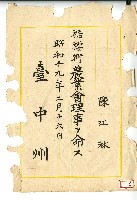 陳江林
農業會理事ヲ命ス
昭和十九年二月十六日
臺中州